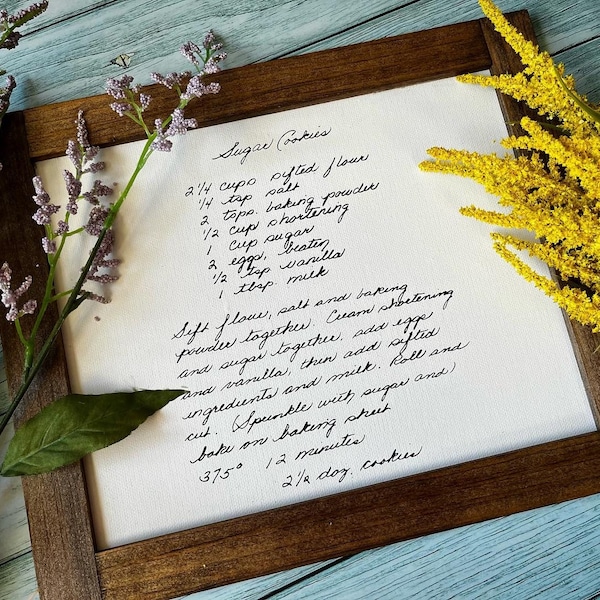 Sugar Cookies
2 1/4 cups sifted flour
1/4 tsp salt
2 tsps. baking powder
1/2 cup shortening
1 cup sugar
2 eggs, beaten
1/2 tsp vanilla
1 tbsp. milk
Sift flour, salt and baking
powder together. Cream shortening
and sugar together, add eggs
and vanilla, then add sifted
ingredients and milk. Roll and
cut. (Sprinkle with sugar and)
bake on baking sheet
375° 12 minutes
2 1/2 doz. cookies